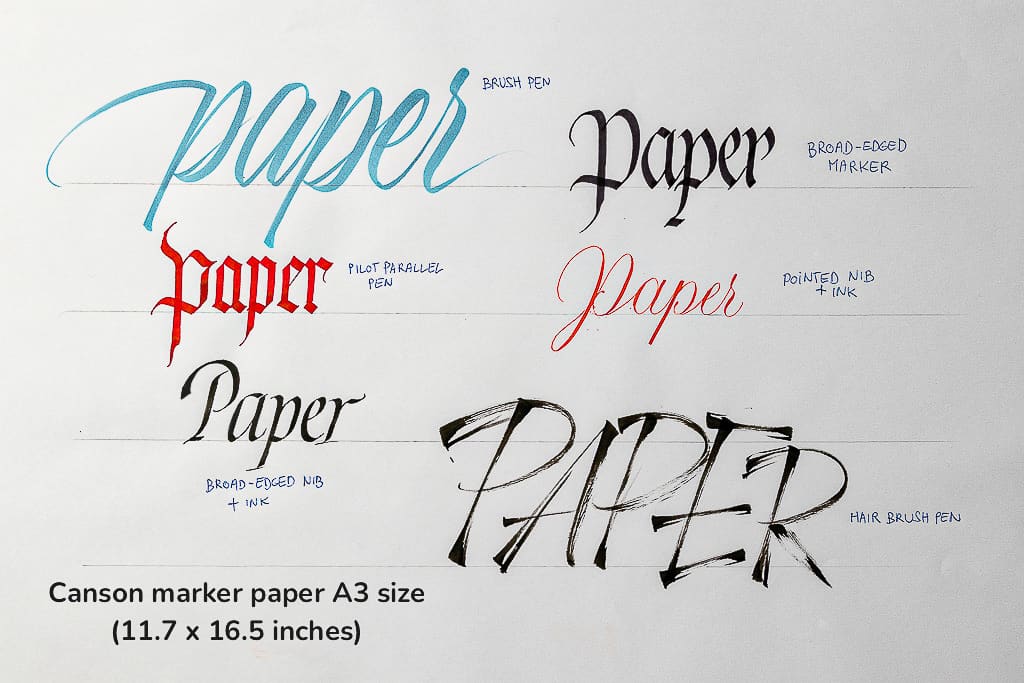 paper
BRUSH PEN
Paper
BROAD-EDGED
MARKER
Paper
PILOT PARALLEL
PEN
Paper
POINTED NIB
+ INK
Paper
BROAD-EDGED NIB
+ INK
PAPER
HAIR BRUSH PEN
Canson marker paper A3 size
(11.7 x 16.5 inches)